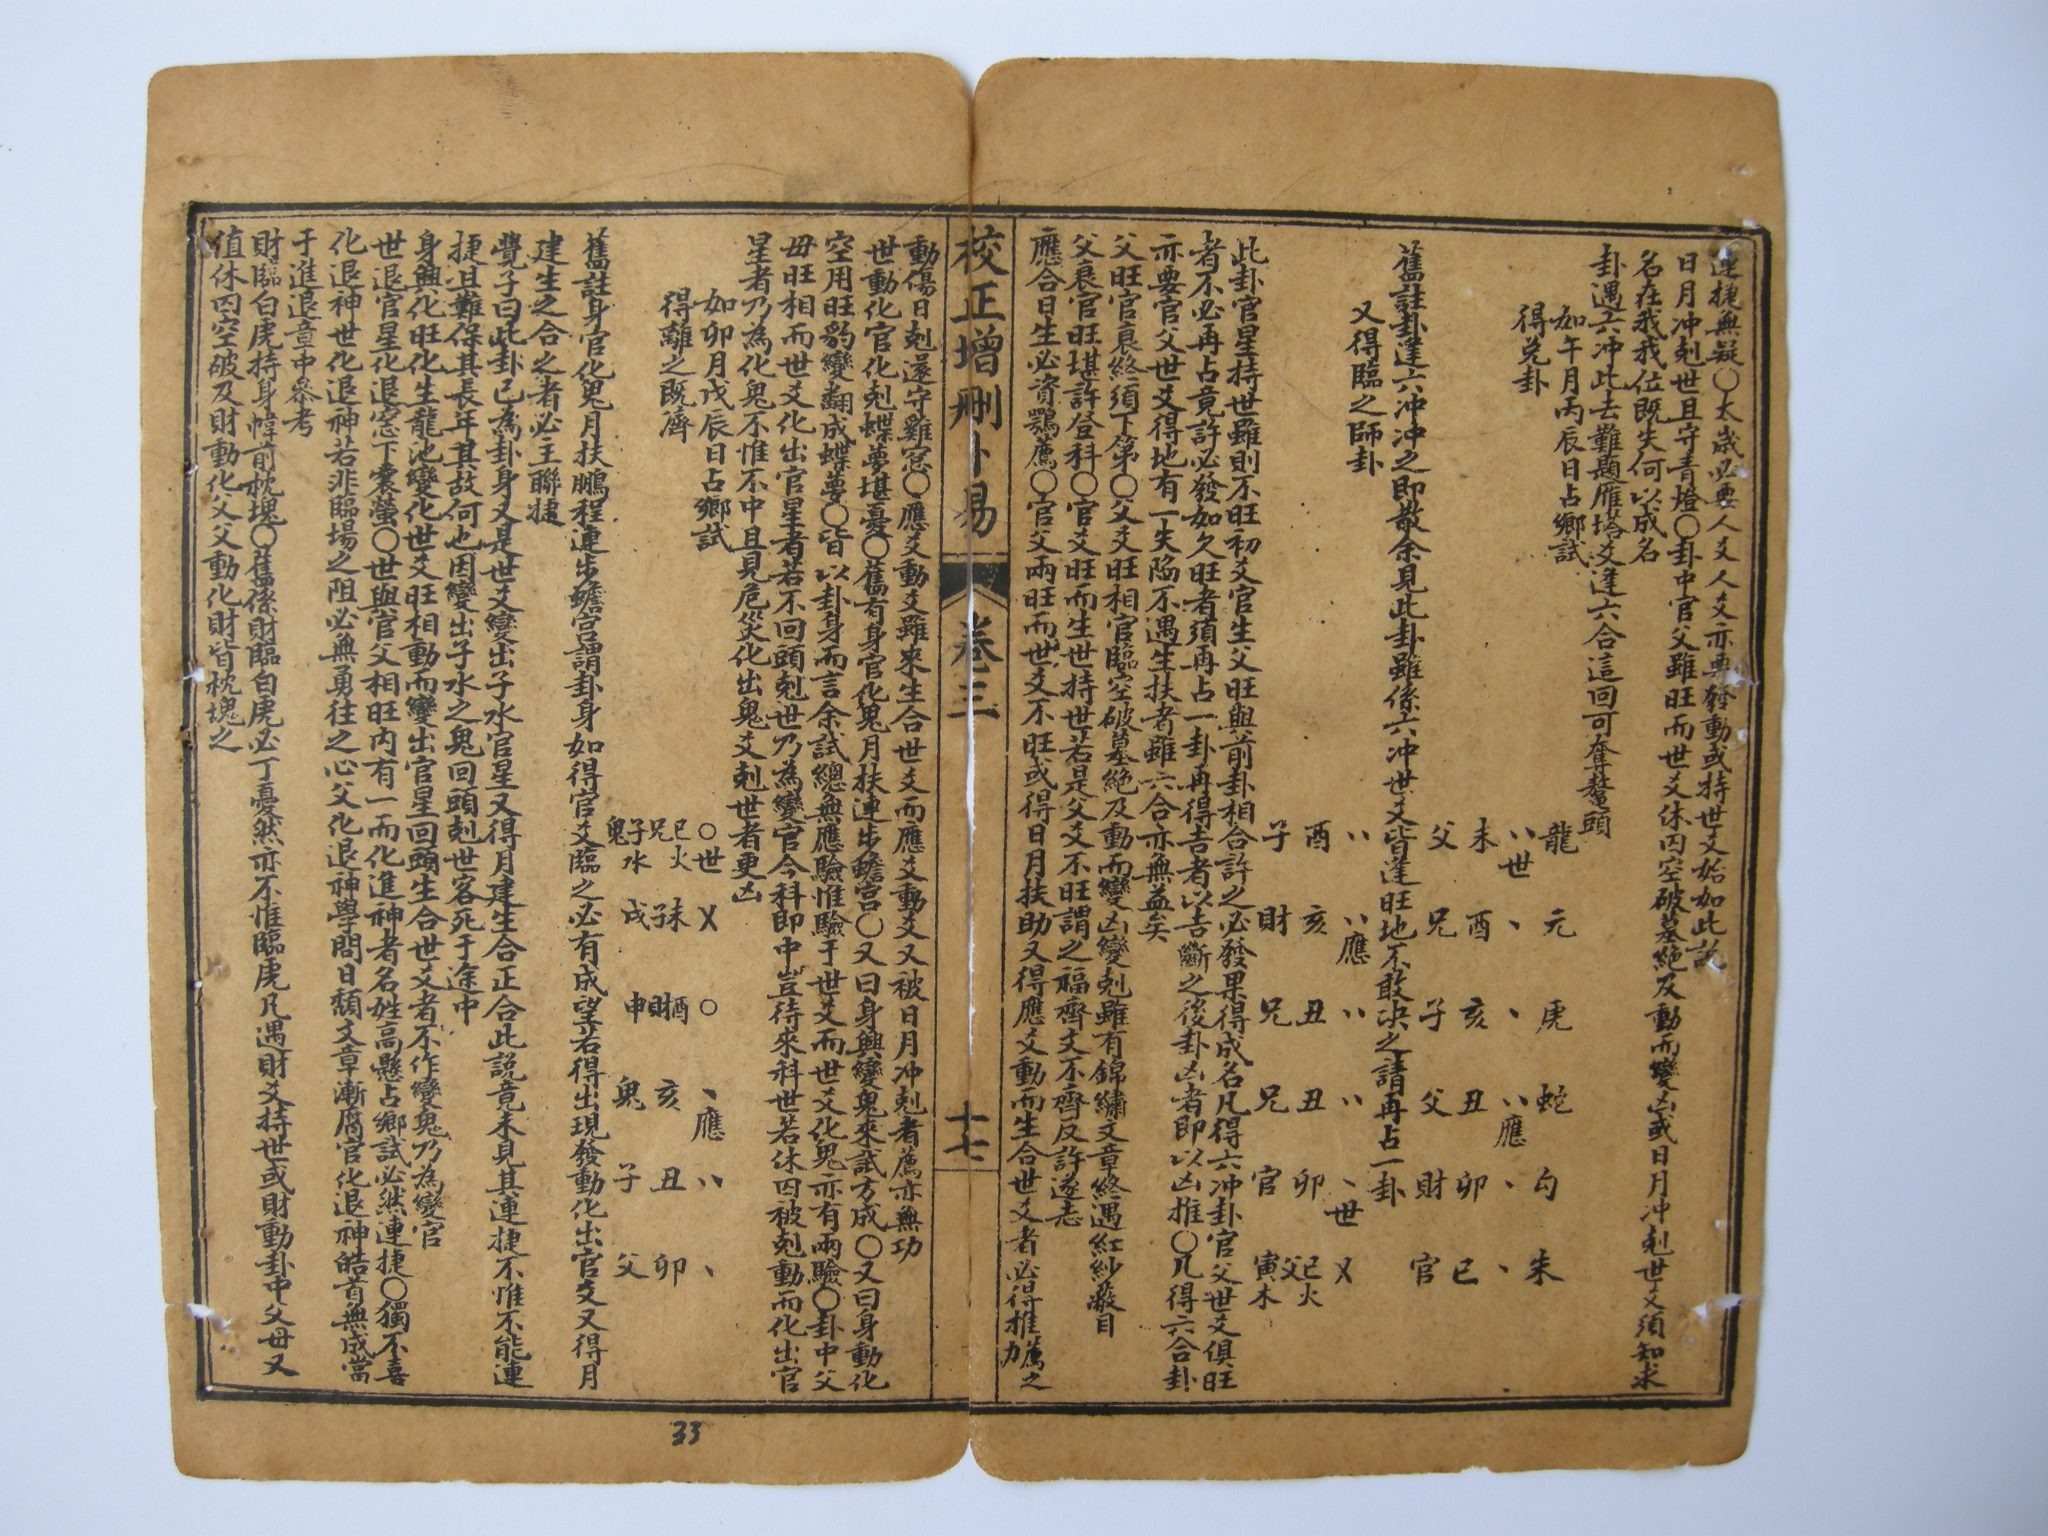 連捷無疑○太歲必要人爻人爻亦要發動或持世爻始如此說
日月冲剋世且守青燈○卦中官父雖旺而世爻休囚空破墓絕及動而變凶或日月冲剋世爻須知求
名在我我位既失何以成名
卦遇六冲此去難題雁塔爻逢六合這回可奪鰲頭
如午月丙辰日占鄉試
得兌卦
龍 元 虎 蛇 勾 朱
、、世 、 、 、、應 、 、
未 酉 亥 丑 卯 巳
父 兄 子 父 財 官
舊註卦逢六冲冲之即散余見此卦雖係六冲世爻皆逢旺地不敢决之請再占一卦
又得臨之師卦
、、 、、應 、、 、、 、世 乂
酉 亥 丑 丑 卯 巳火父
子 財 兄 兄 官 寅木
此卦官星持世雖則不旺初爻官生父旺與前卦相合許之必發果得成名凡得六冲卦官父世爻俱旺
者不必再占竟許必發如欠旺者須再占一卦再得吉者以吉斷之後卦凶者即以凶推○凡得六合卦
亦要官父世爻得地有一失陷不遇生扶者雖六合亦無益矣
父旺官衰終須下第○父爻旺相官臨空破墓絕及動而變凶變剋雖有錦繡文章終遇紅紗蔽目
父衰官旺堪許登科○官爻旺而生世持世若是父爻不旺謂之福齊文不齊反許遂志
應合日生必資鶚薦○官父兩旺而世爻不旺或得日月扶助又得應爻動而生合世爻者必得推薦之力
校正增刪卜易 卷三 十七
動傷日剋還守雞窓○應爻動爻雖來生合世爻而應爻動爻又被日月冲剋者薦亦無功
世動化官化剋蝶夢堪憂○舊有身官化鬼月扶連步蟾宮○又曰身興變鬼來試方成○又曰身動化
空用旺豹變翻成蝶夢○皆以卦身而言余試總無應驗惟驗于世爻而世爻化鬼亦有兩驗○卦中父
毋旺相而世爻化出官星者若不回頭剋世乃為變官今科即中豈待來科世若休囚被剋動而化出官
星者乃為化鬼不惟不中且見危災化出鬼爻剋世者更凶
如卯月戊辰日占鄉試
得離之既濟
○世 乂 ○ 、應 、、 、
巳火兄 未子 酉財 亥 丑 卯
子水鬼 戌 申 鬼 子 父
舊註身官化鬼月扶鵬程連步蟾宮謂卦身如得官爻臨之必有成望若得出現發動化出官爻又得月
建生之合之者必主聯捷
覺子曰此卦已為卦身又是世爻變出子水官星又得月建生合正合此說竟未見其連捷不惟不能連
捷且難保其長年其故何也因變出子水之鬼回頭剋世客死于途中
身興化旺化生龍池變化世爻旺相動而變出官星回頭生合世爻者不作變鬼乃為變官
世退官星化退窓下囊螢○世與官父相旺內有一而化進神者名姓高懸占鄉試必然連捷○獨不喜
化退神世化退神若非臨場之阻必無勇往之心父化退神學問日頹文章漸腐官化退神皓首無成當
于進退章中參考
財臨白虎持身幃前枕塊○舊係財臨白虎必丁憂然亦不惟臨虎凡遇財爻持世或財動卦中父毋又
值休囚空破及財動化父父動化財皆枕塊之
33